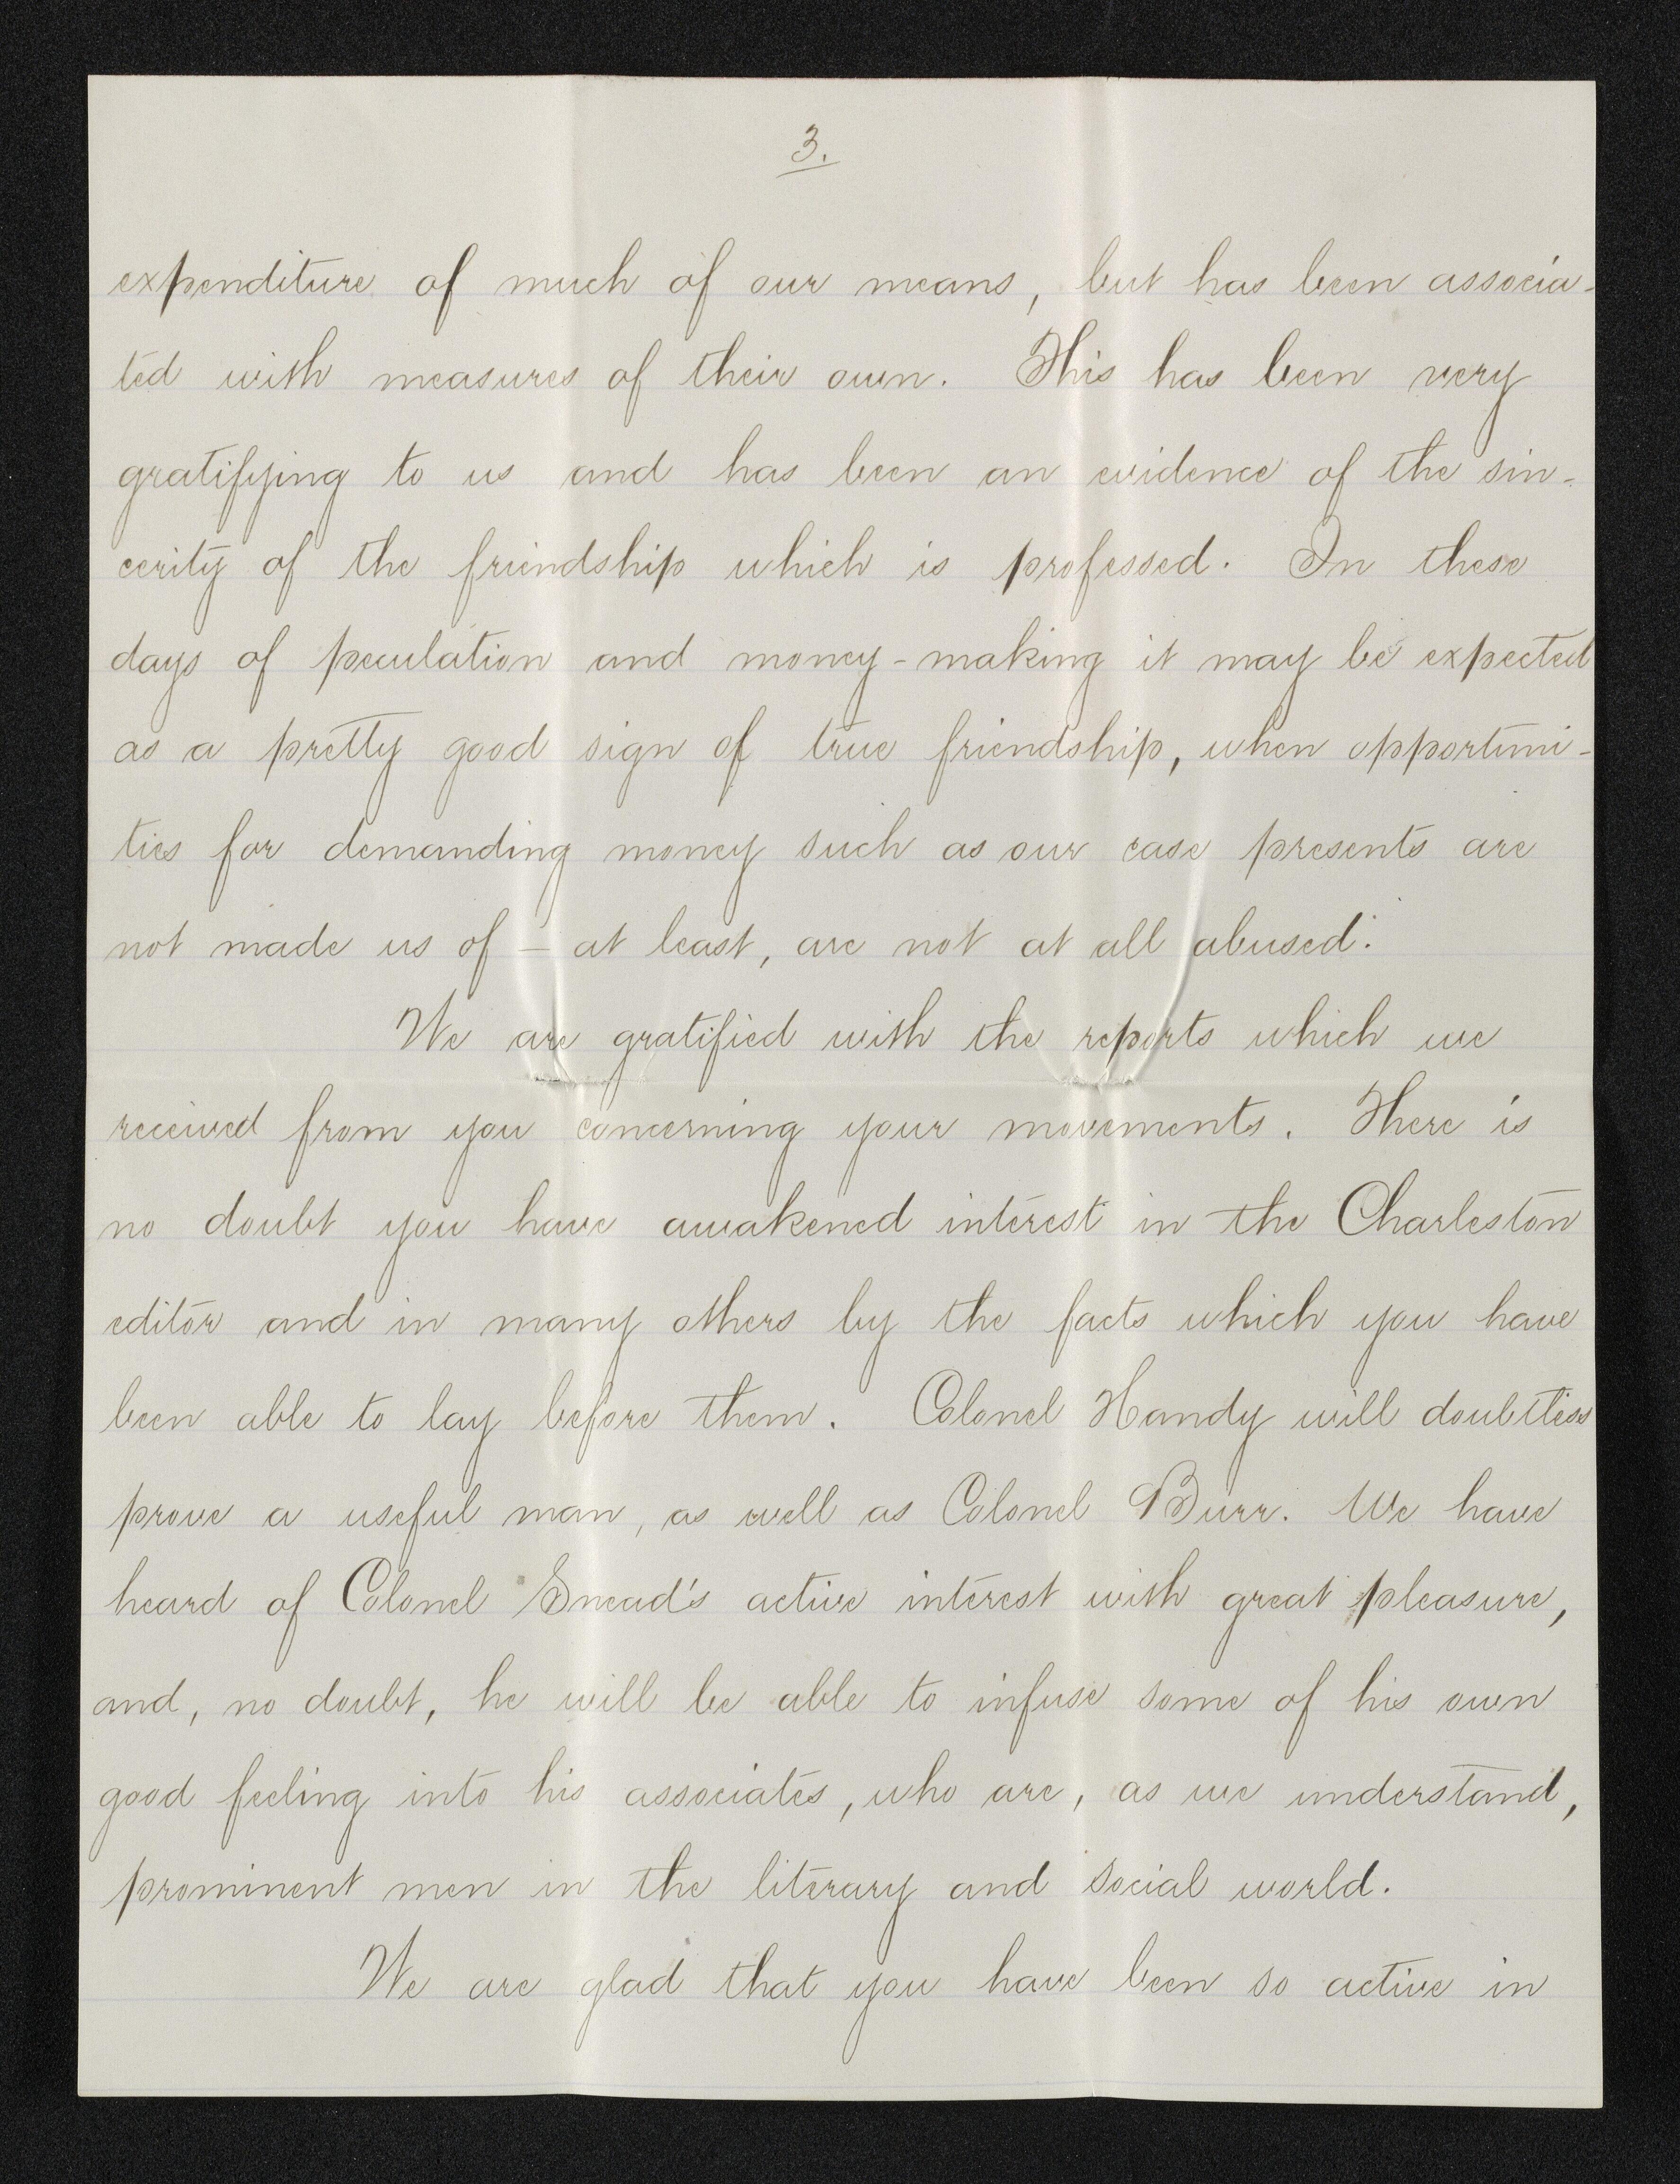 3.
expenditure of much of our means, but has been associa-
ted with measures of their own. This has been very
gratifying to us and has been an evidence of the sin-
cerity of the friendship which is professed. In these
days of peculation and money-making it may be expected
as a pretty good sign of true friendship, when opportuni-
ties for demanding money such as our case presents are
not made us of – at least, are not at all abused.
We are gratified with the reports which we
received from you concerning your movements. There is
no doubt you have awakened interest in the Charleston
editor and in many others by the facts which you have
been able to lay before them. Colonel Handy will doubtless
prove a useful man, as well as Colonel Burr. We have
heard of Colonel Snead's active interest with great pleasure,
and, no doubt, he will be able to infuse some of his own
good feeling into his associates, who are, as we understand,
prominent men in the literary and social world.
We are glad that you have been so active in